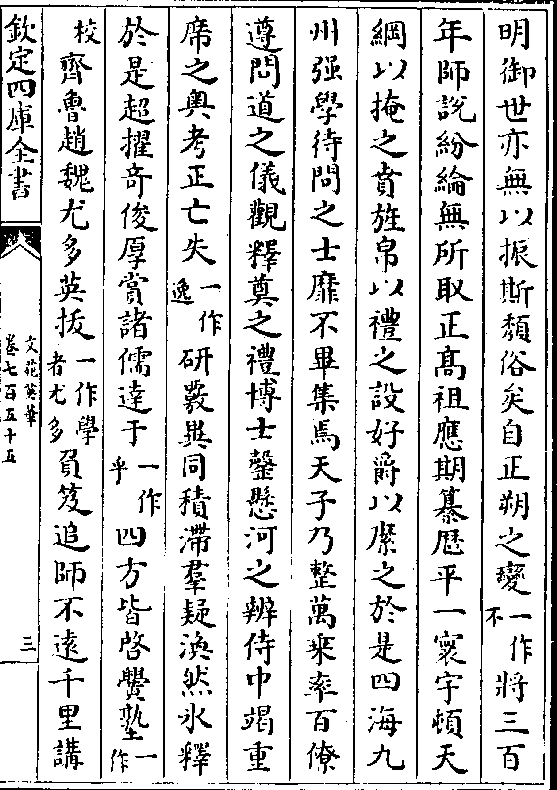 明御世亦無以振斯頽俗矣自正朔之變一作不將三百
年師說紛綸無所取正髙祖應期纂歴平一寰宇頓天
綱以掩之賁旌帛以禮之設好爵以縻之於是四海九
州强學待問之士靡不畢集焉天子乃整萬乗率百僚
遵問道之儀觀釋奠之禮博士罄懸河之辨侍中竭重
席之奥考正亡失一作逸研覈異同積滯羣疑渙然氷釋
於是超擢竒俊厚賞諸儒達于一作乎四方皆啓黌塾一作
校齊魯趙魏尤多英抜一作學者尤多負笈追師不逺千里講
欽定四庫全書
文苑英華
卷七百五十五
三